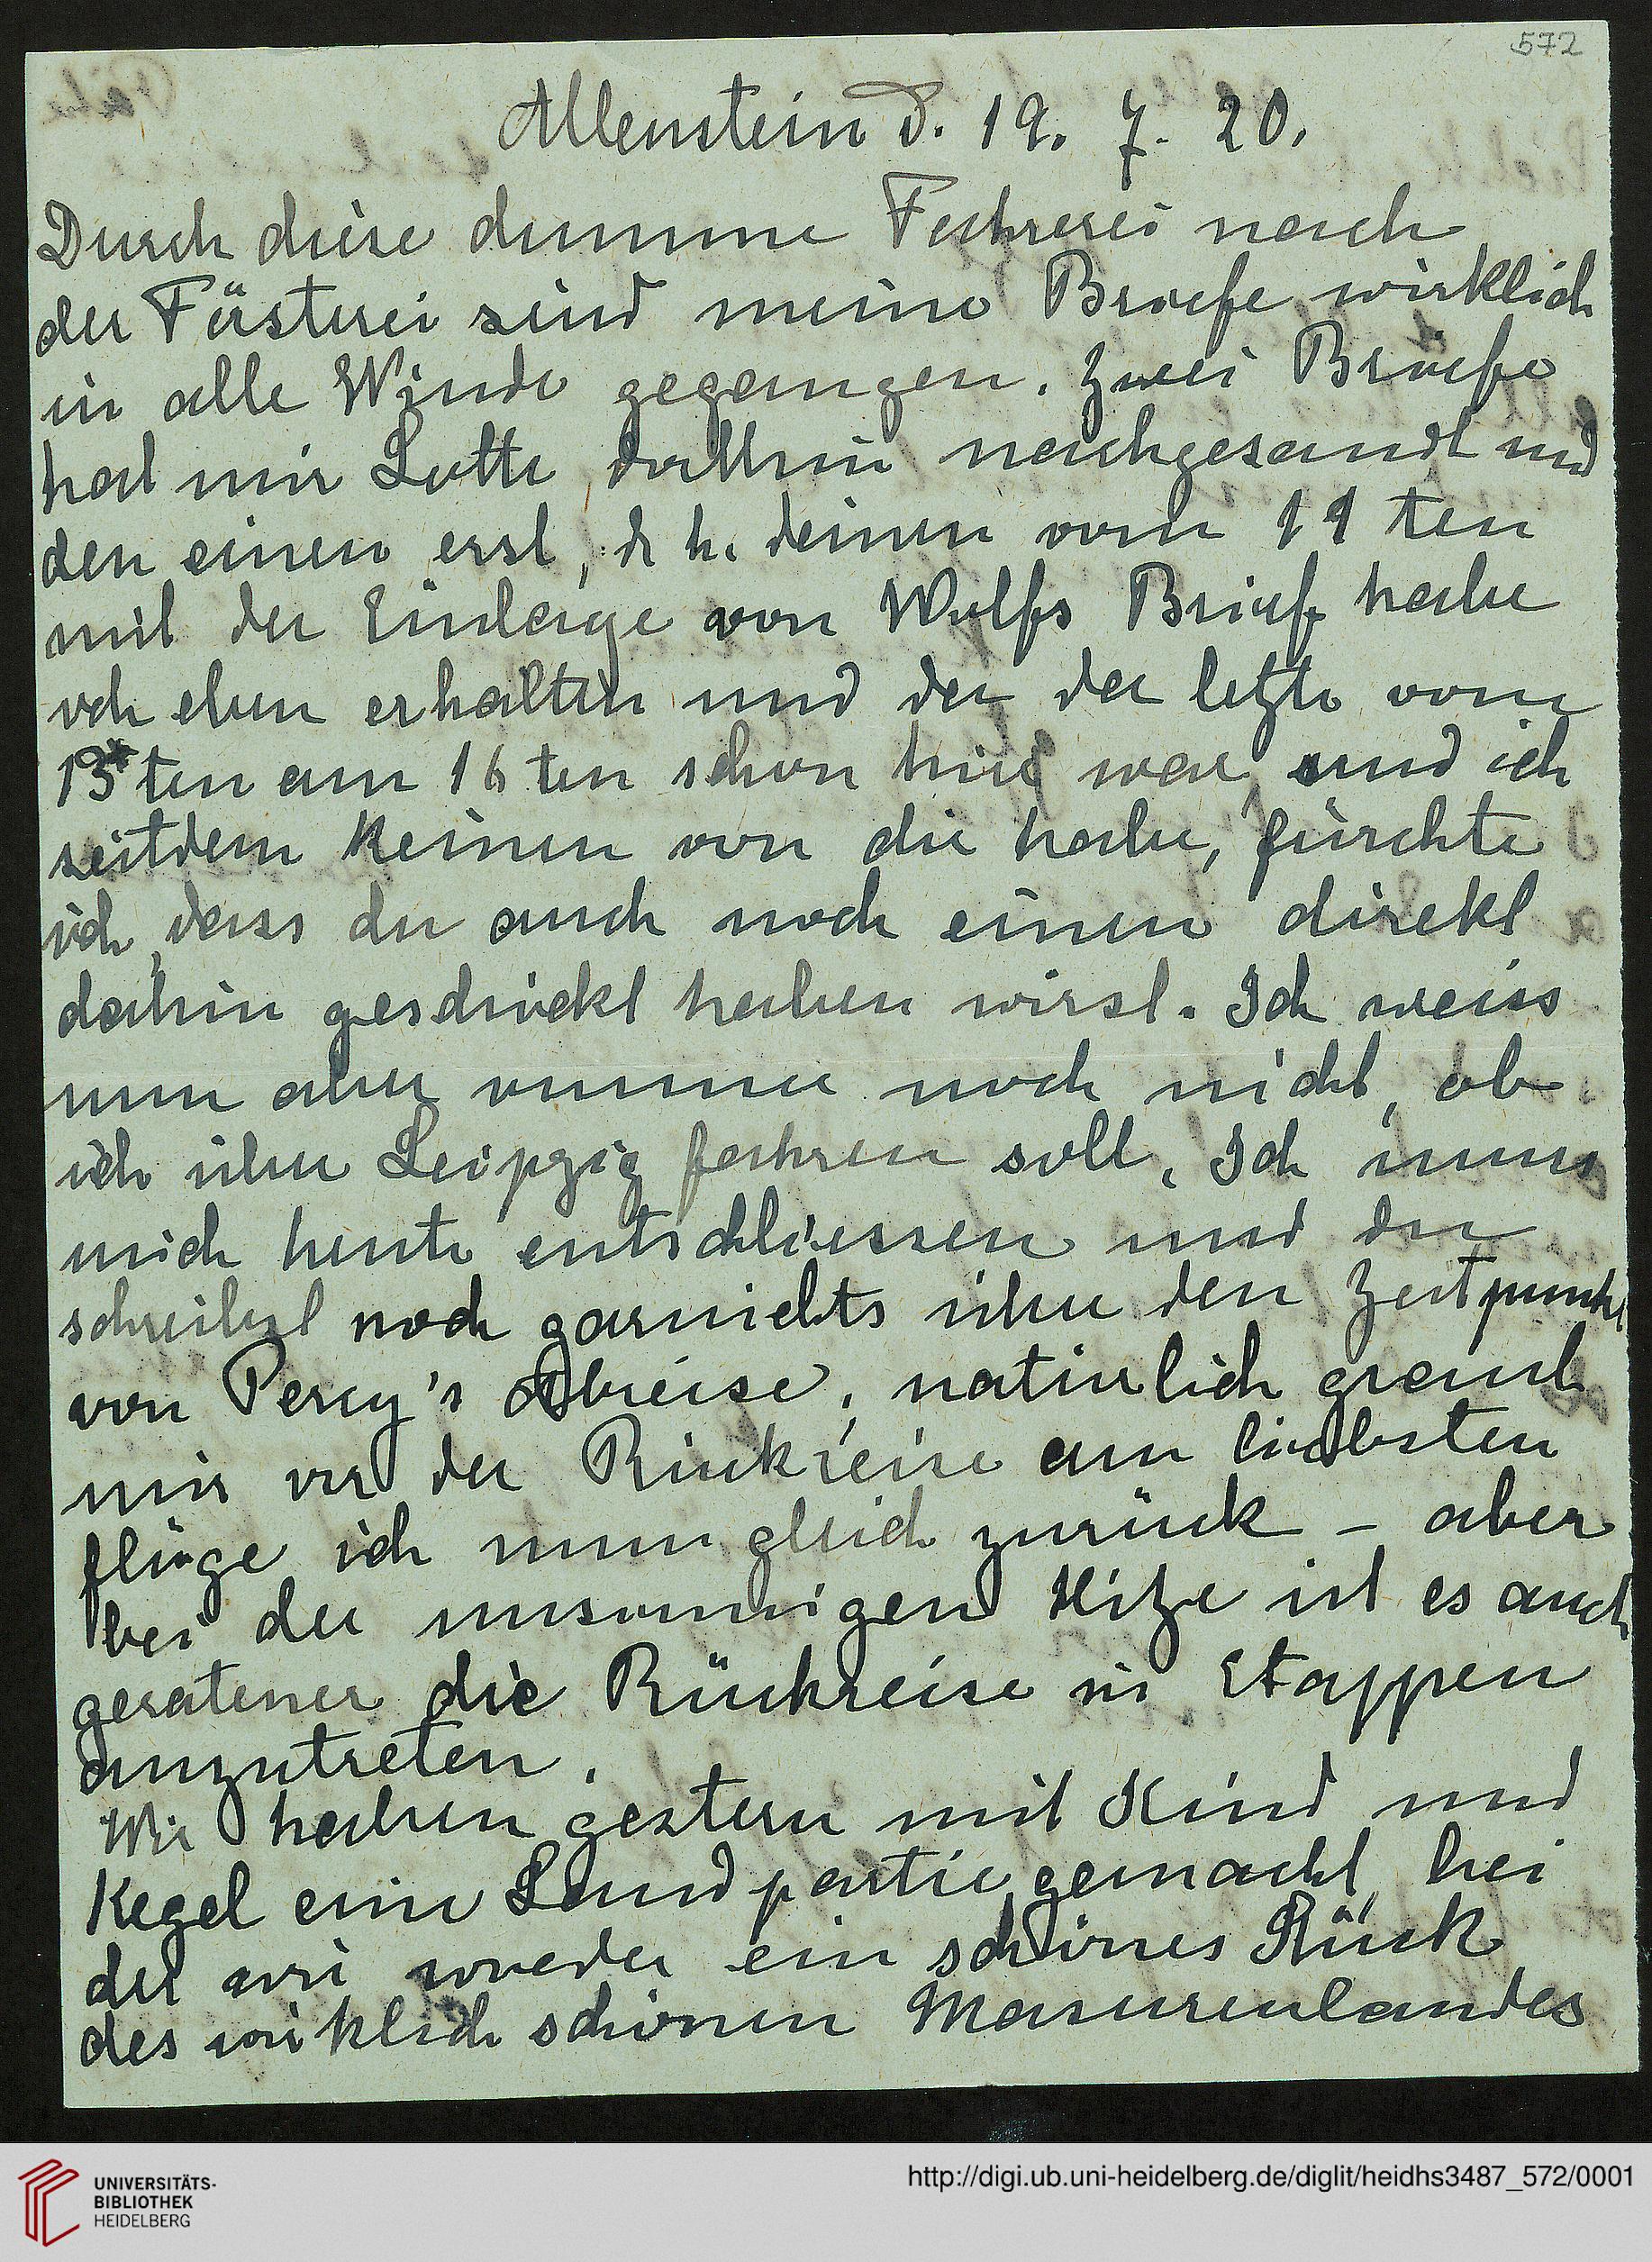 572
Allenstein d. 19. 7. 20.
Durch diese dumme Fahrerei nach
der Försterei sind meine Briefe wirklich
in alle Winde gegangen. Zwei Briefe
hat mir Lotte dorthin nachgesandt und
den einen erst, d. h. deinen vom 11ten
mit der Einlage von Wolfs Brief habe
ich eben erhalten und da der letzte vom
13ten am 16ten schon hier war und ich
seitdem keinen von dir habe, fürchte
ich, dass du auch noch einen direkt
dahin geschickt haben wirst. Ich weiss
nun aber immer noch nicht, ob
ich über Leipzig fahren soll. Ich muss
mich heute entschliessen und du
schreibst noch garnichts über den Zeitpunkt
von Percy's Abreise, natürlich grault
mir vor der Rückreise am liebsten
flöge ich nun gleich zurück – aber
bei der unsinnigen Hitze ist es auch
geratener die Rückreise in Etappen
anzutreten.
Wir haben gestern mit Kind und
Kegel eine Landpartie gemacht, bei
der wir wieder ein schönes Stück
des wirklich schönen Masurenlandes
UNIVERSITÄTS-
BIBLIOTHEK
HEIDELBERG
http://digi.ub.uni-heidelberg.de/diglit/heidhs3487_572/0001